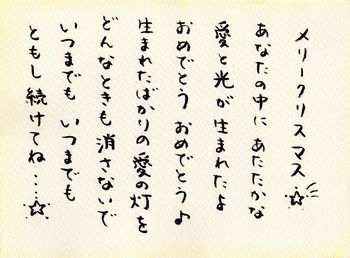 メリークリスマス☆
あなたの中に あたたかな
愛と光が 生まれたよ
おめでとう おめでとうよ
生まれたばかりの愛の灯を
どんなときも 消さないで
いつまでも いつまでも
ともし続けてね・・・☆